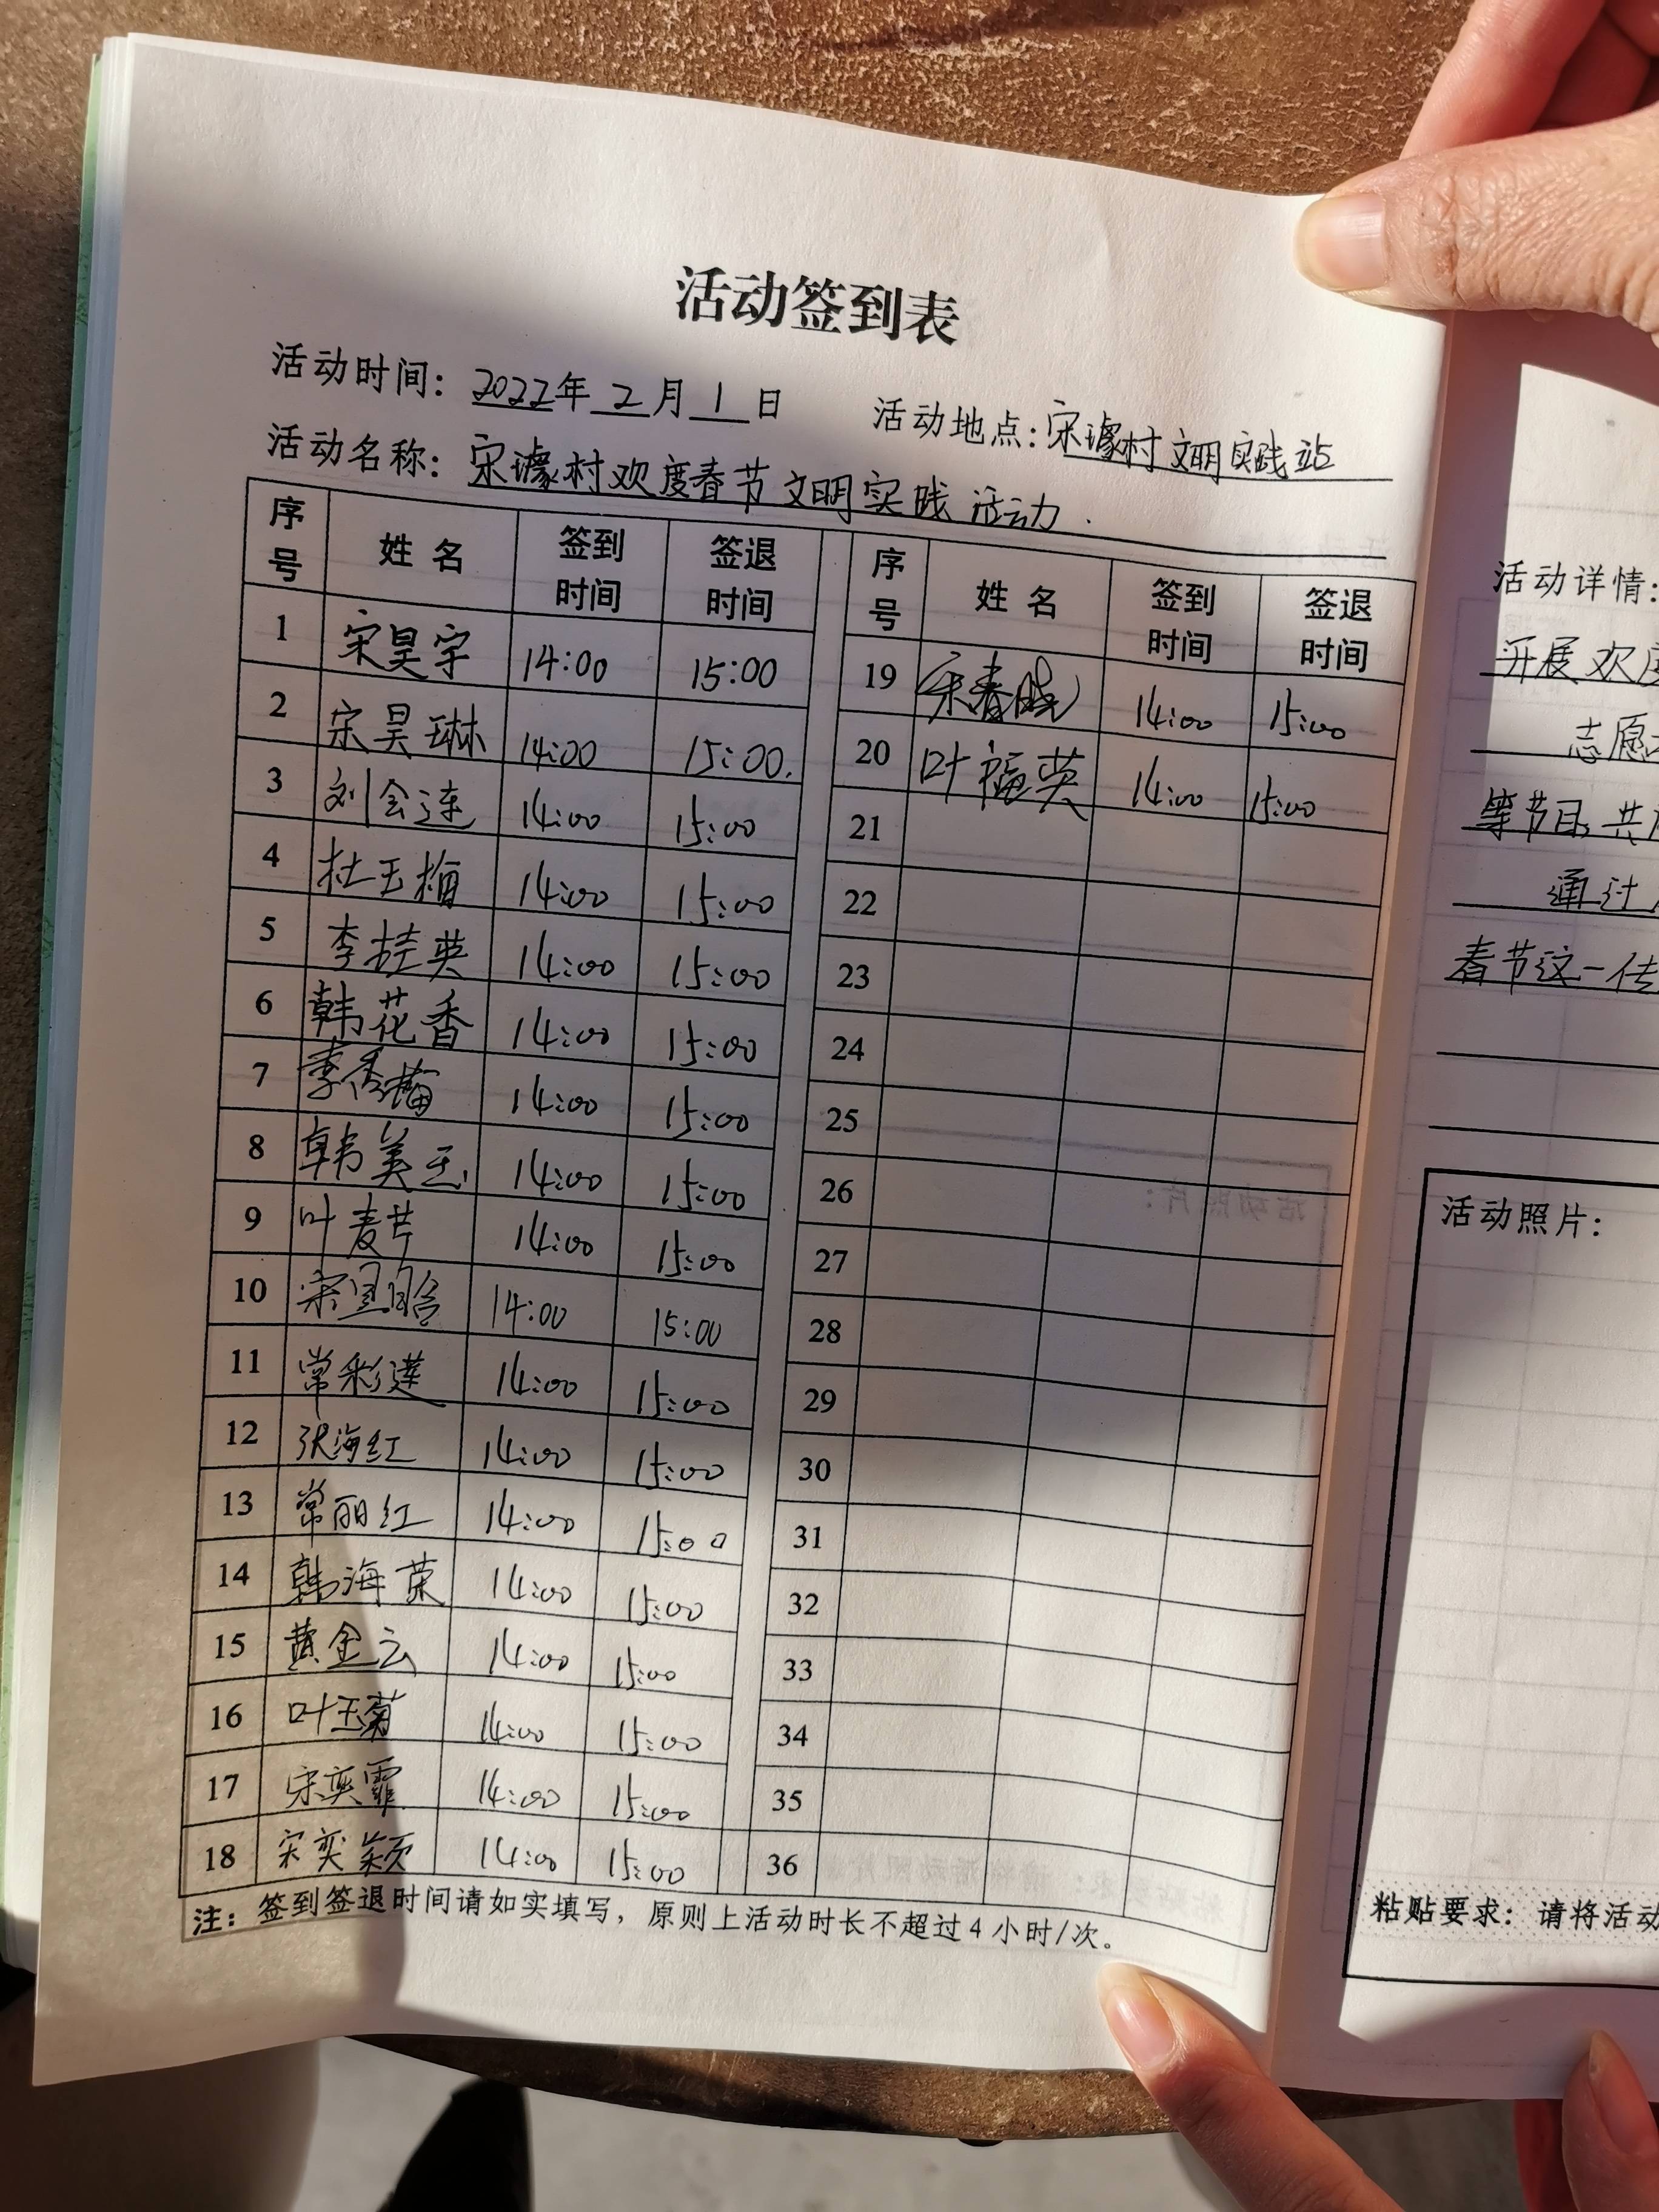 活动签到表
活动时间：2022年2月1日 活动地点：宋璩村文明实践站
活动名称：宋璩村欢度春节文明实践活动.
序号 姓名 签到时间 签退时间 序号 姓名 签到时间 签退时间
1 宋昊宇 14:00 15:00 19 宋春晓 14:00 15:00
2 宋昊琳 14:00 15:00. 20 叶福英 14:00 15:00
3 刘会连 14:00 15:00 21
4 杜玉梅 14:00 15:00 22
5 李桂英 14:00 15:00 23
6 韩花香 14:00 15:00 24
7 李秀梅 14:00 15:00 25
8 韩美玉 14:00 15:00 26
9 叶麦芹 14:00 15:00 27
10 宋 14:00 15:00 28
11 常彩莲 14:00 15:00 29
12 张海红 14:00 15:00 30
13 常丽红 14:00 15:00 31
14 韩海荣 14:00 15:00 32
15 黄金云 14:00 15:00 33
16 叶玉菊 14:00 15:00 34
17 宋奕霏 14:00 15:00 35
18 宋奕颖 14:00 15:00 36
注：签到签退时间请如实填写，原则上活动时长不超过4小时/次。
活动详情：
开展欢度
志愿
等节目,共
通过
春节这一传
活动照片：
粘贴要求：请将活动